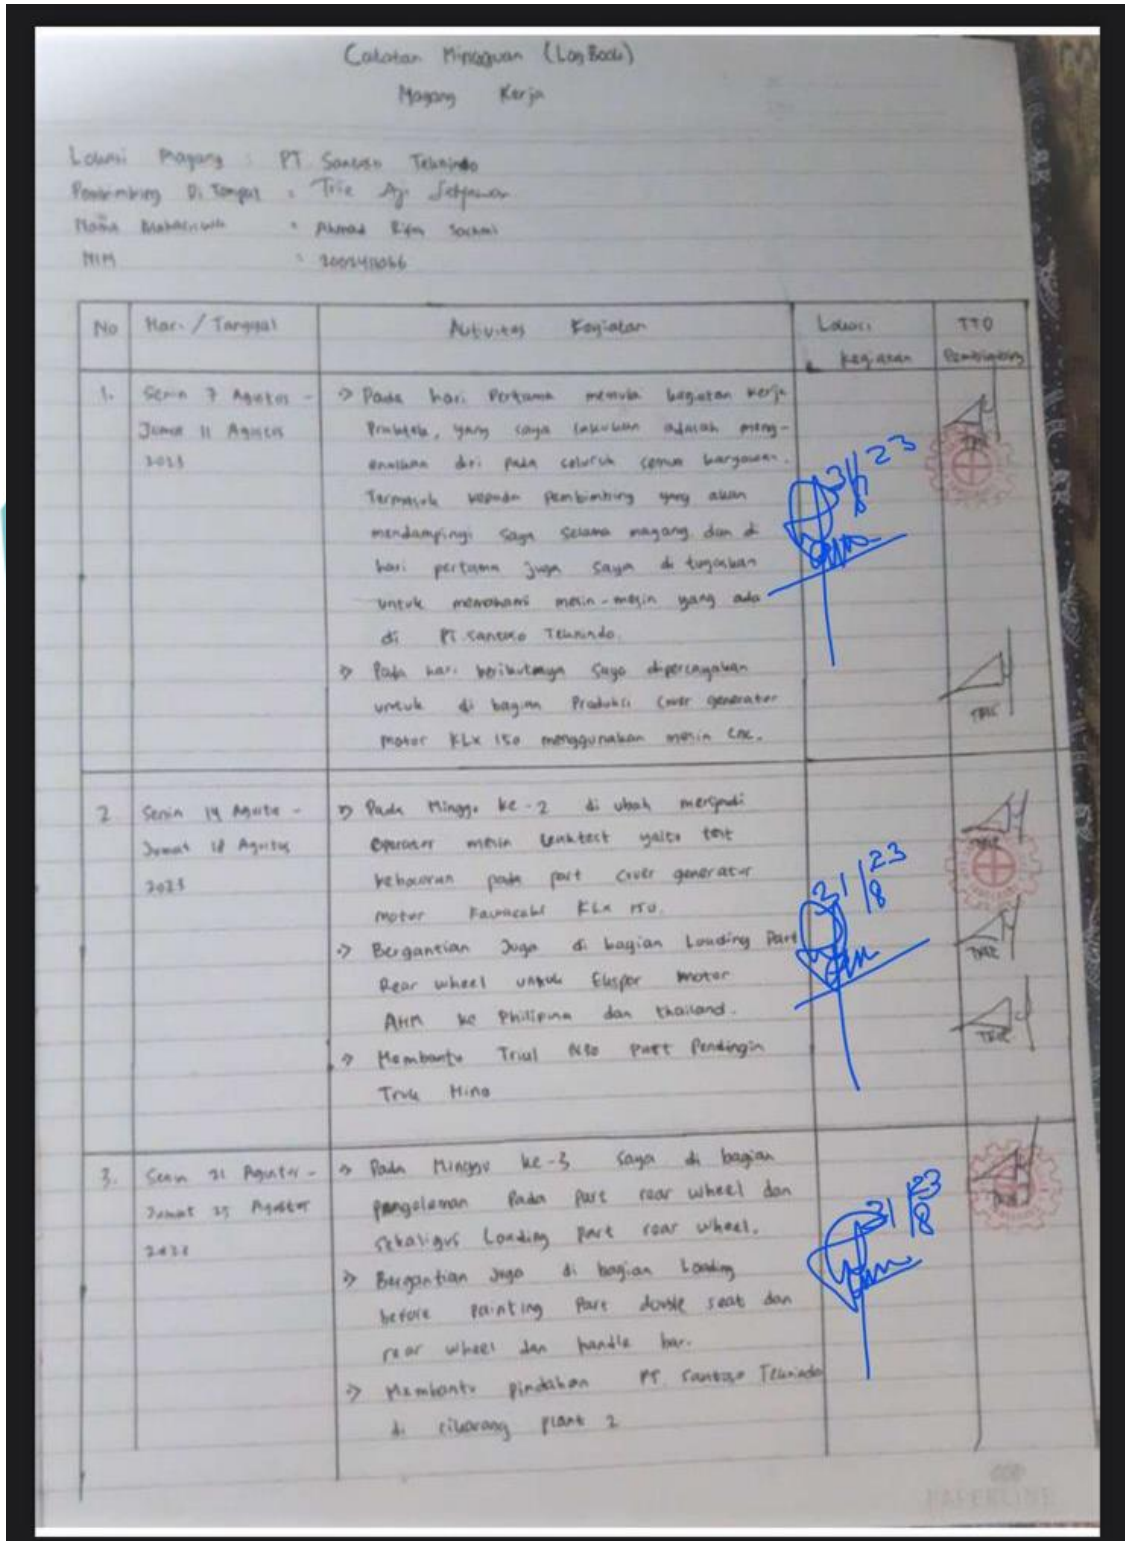 Catatan Mingguan (Log Book)
Magang Kerja
Lokasi Magang : PT Santoso Teknindo
Pembimbing Di Tempat : Trie Aji Setyawan
Nama Mahasiswa : Ahmad
NIM :
No Hari / Tanggal Aktivitas Kegiatan Lokasi Kegiatan TTD Pembimbing
1. Senin 7 Agustus - Jumat 11 Agustus 2023
-> Pada hari Pertama memulai kegiatan kerja
Praktek, yang saya lakukan adalah meng-
enalkan diri pada seluruh semua karyawan.
Termasuk kepada Pembimbing yang akan
mendampingi saya selama magang dan di
hari pertama juga saya di tugaskan
untuk memahami mesin-mesin yang ada
di PT. Santoso Teknindo.
-> Pada hari berikutnya saya dipercayakan
untuk di bagian Produksi Cover generator
motor KLX 150 menggunakan mesin CNC.
31/8 23
TRIE
2 Senin 14 Agustus - Jumat 18 Agustus 2023
-> Pada Minggu ke-2 di ubah menjadi
Operator mesin Leaktest yaitu test
kebocoran pada part cover generator
motor Kawasaki KLX 150.
-> Bergantian Juga di bagian Loading Part
Rear wheel untuk Ekspor motor
AHM ke Philipina dan thailand.
-> Membantu Trial Part Pendingin
Truk Hino
31/8 23
TRIE
TRIE
TRIE
3. Senin 21 Agustus - Jumat 25 Agustus 2023
-> Pada Minggu ke-3 saya di bagian
pengeleman Pada part rear wheel dan
sekaligus Loading part rear wheel.
-> Bergantian Juga di bagian Loading
before Painting Part double seat dan
rear wheel dan handle bar.
-> Membantu pindahan PT. Santoso Teknindo
di cikarang plant 2
31/8 23
PAPERLINE